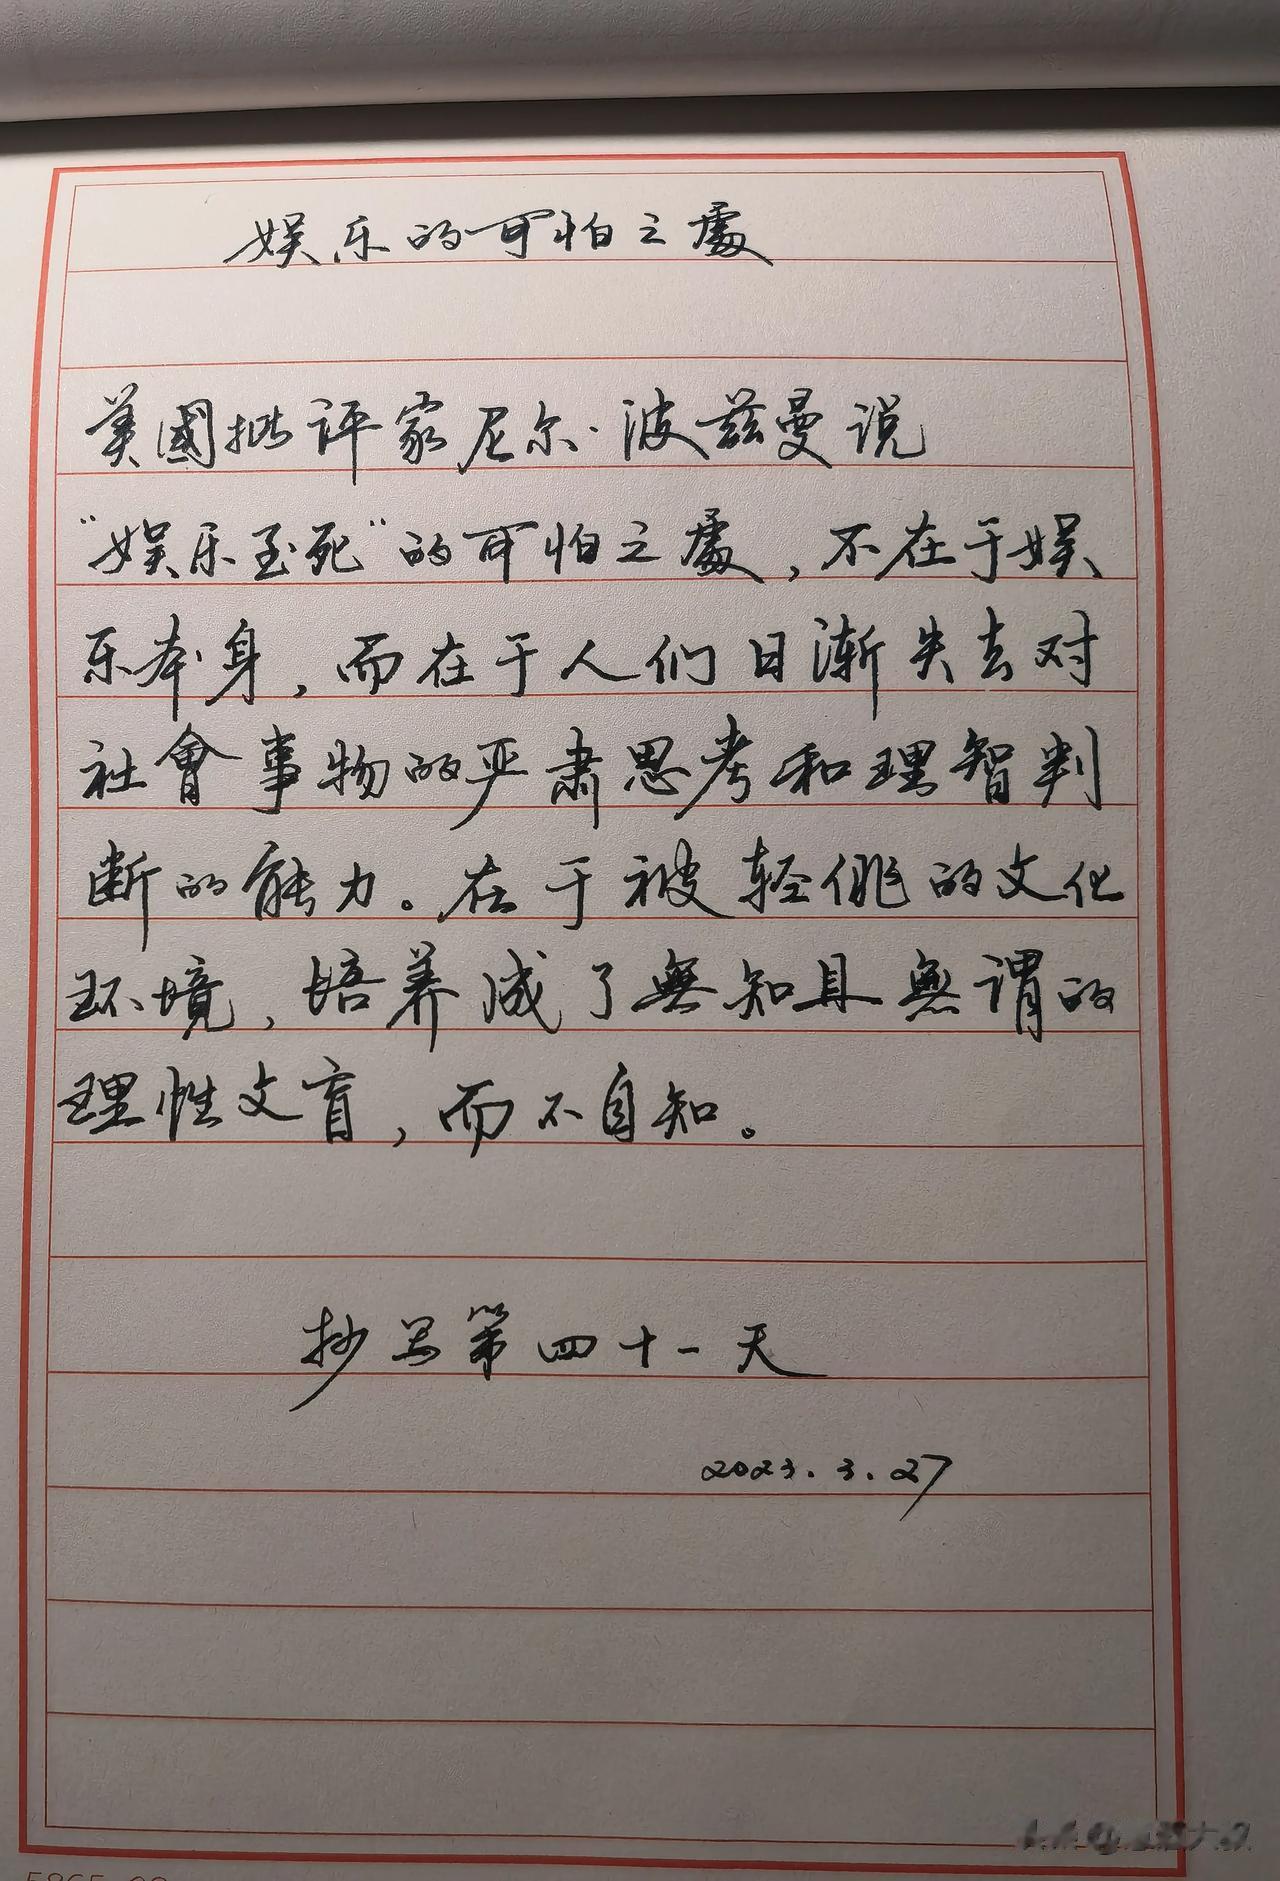 娱乐的可怕之處
美國批评家尼尔·波兹曼说
“娱乐至死”的可怕之處，不在于娱
乐本身，而在于人们日渐失去对
社會事物的严肃思考和理智判
断的能力。在于被轻佻的文化
环境，培养成了無知且無谓的
理性文盲，而不自知。
抄写第四十一天
2023.3.27